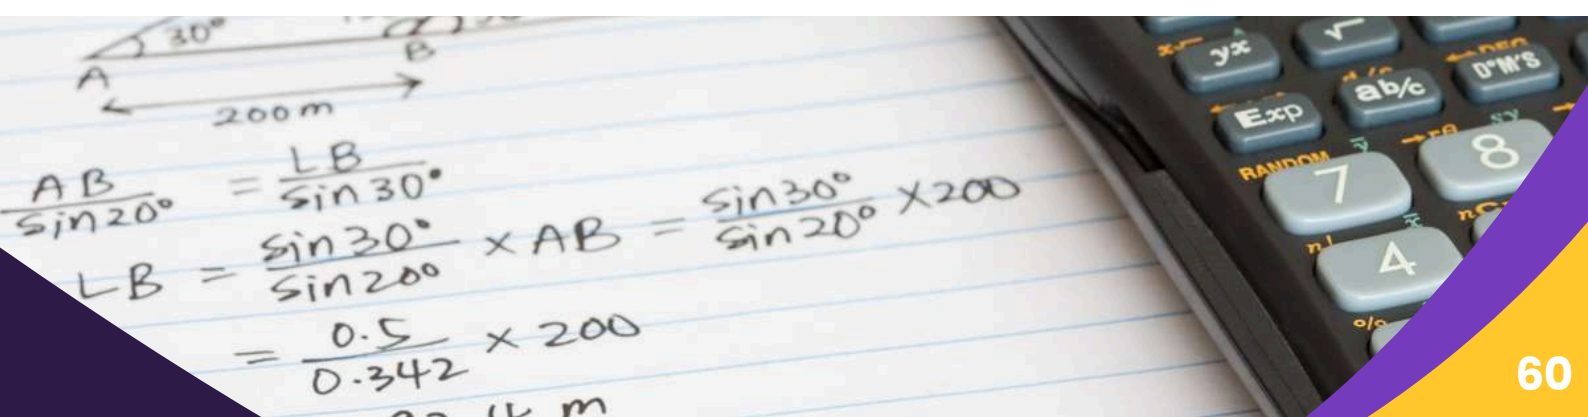 30°
A B
200m
AB/sin20° = LB/sin30°
LB = sin30°/sin20° × AB = sin30°/sin20° ×200
= 0.5/0.342 × 200
m
yx √
Exp ab/c D°M'S
RANDOM
7 8
n!
4
%
60